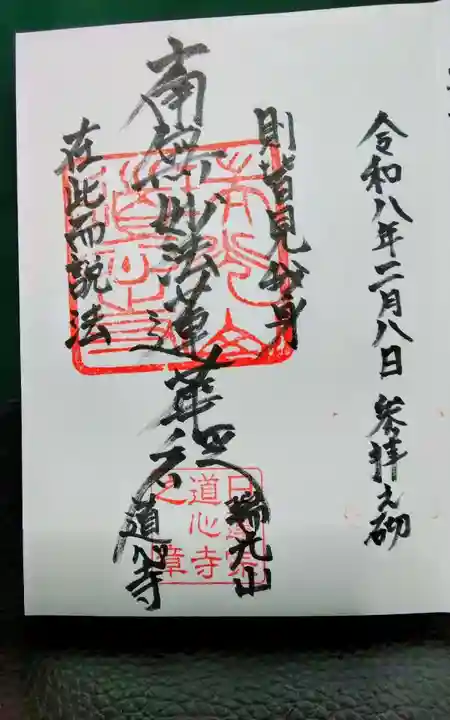 令和八年二月八日 参拝之砌
則皆見此身
南無妙法蓮華経
在此而説法
瑞光山
道心寺
日蓮宗
道心寺
之章